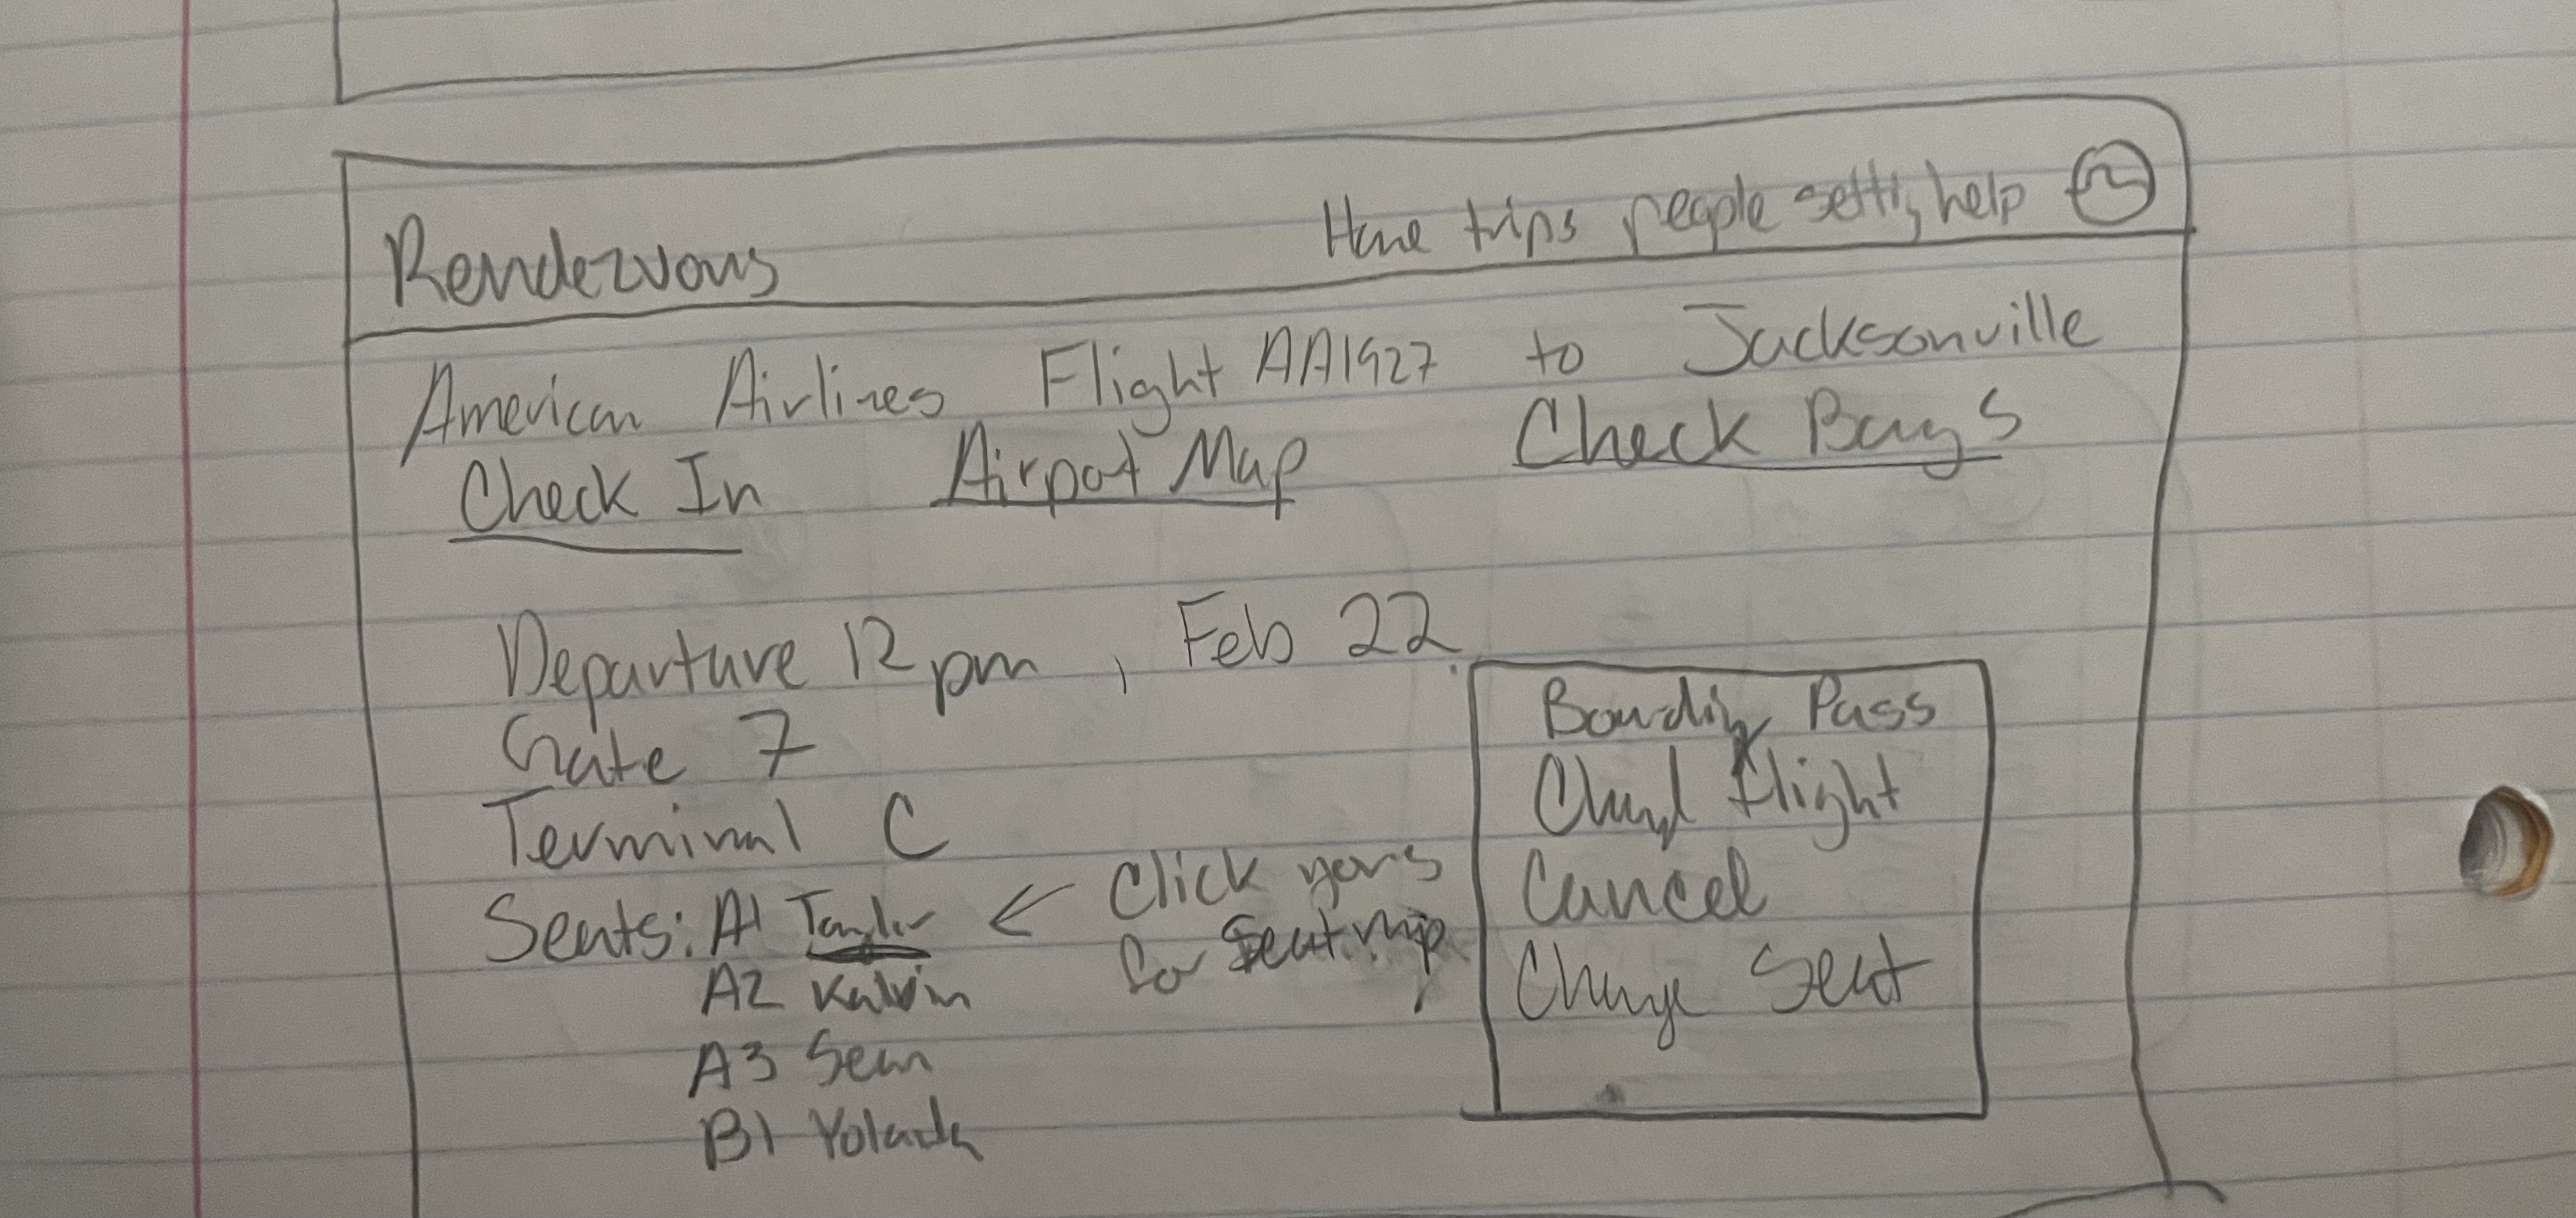 Rendezvous
Home trips people setting help
American Airlines Flight AA1927 to Jacksonville
Check In Airport Map Check Bags
Departure 12 pm, Feb 22
Gate 7
Terminal C
Seats: A1 Taylor ← Click yours
for Seat map
A2 Kalvin
A3 Sean
B1 Yolanda
Boarding Pass
Change flight
Cancel
Change Seat